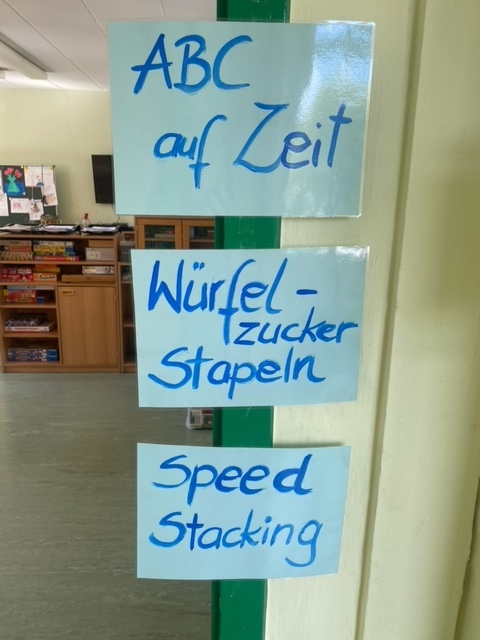 ABC
auf Zeit
Würfel-
zucker
Stapeln
Speed
Stacking